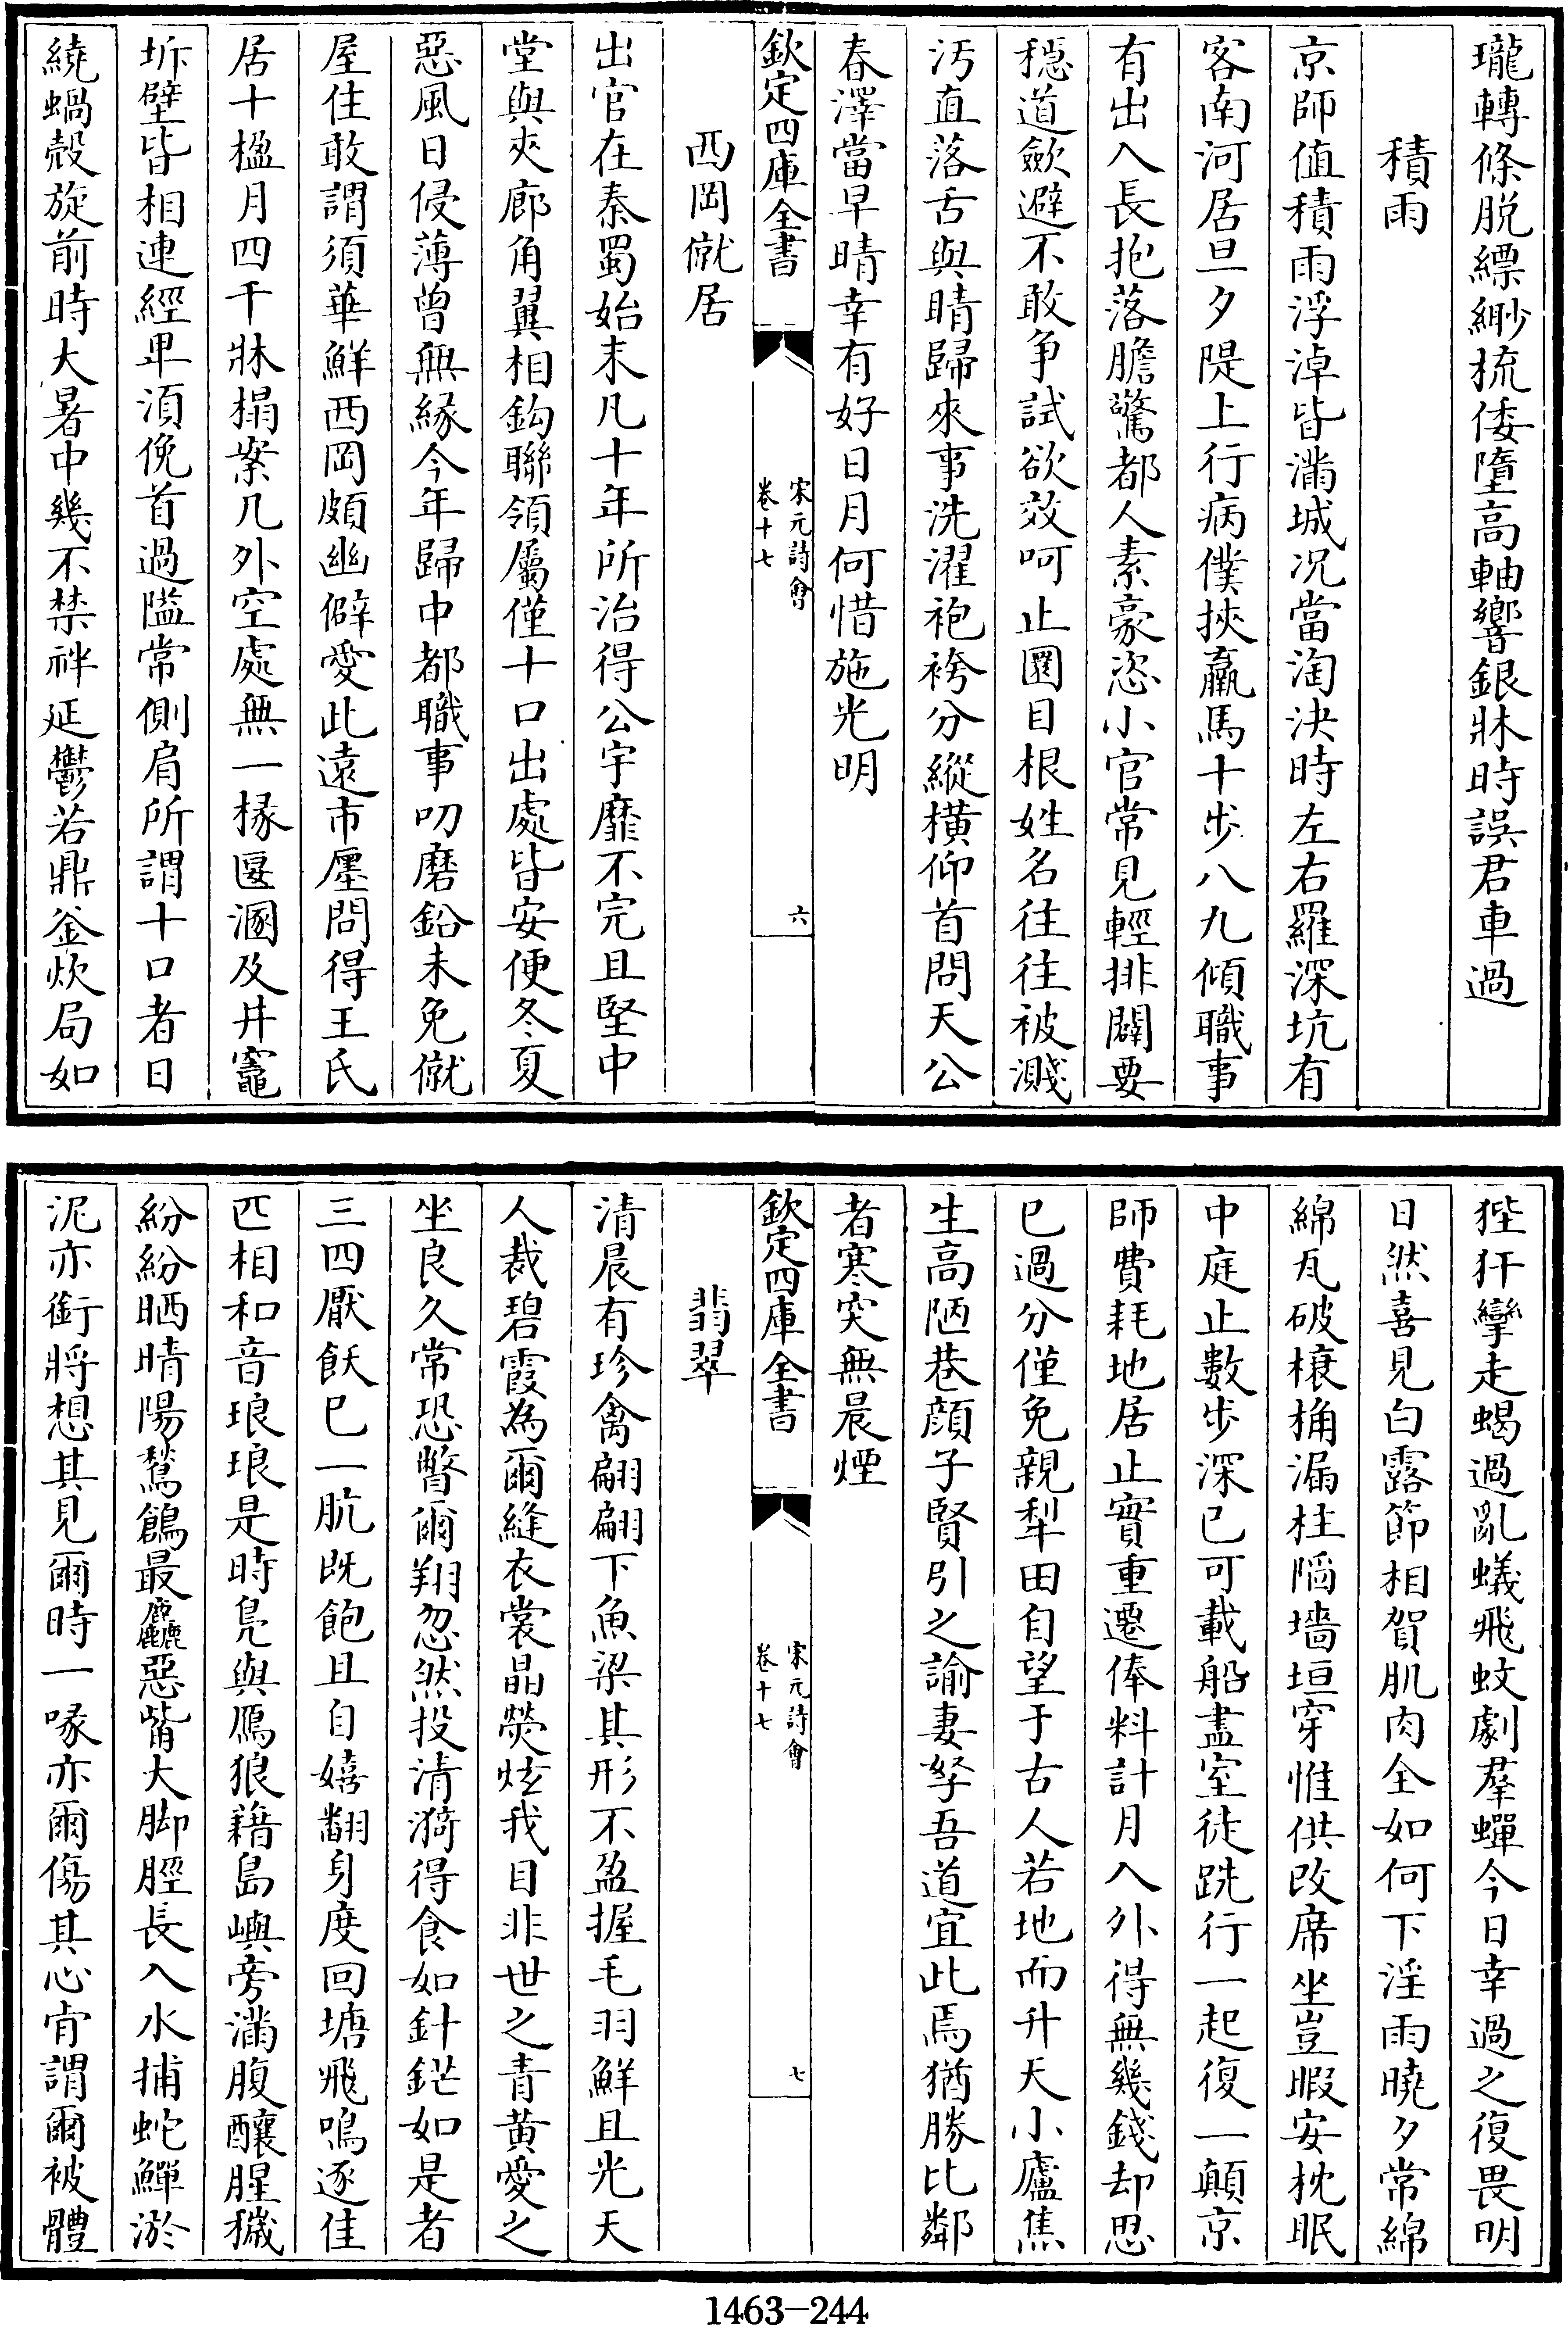 瓏轉條脱縹緲梳倭墮高軸響銀牀時誤君車過
積雨
京師值積雨浮淖皆滿城况當淘決時左右羅深坑有
客南河居旦夕隄上行病僕挾羸馬十步八九傾職事
有出入長抱落膽驚都人素豪恣小官常見輕排闢要
穩道歛避不敢争試欲效呵止圜目根姓名往往被濺
汚直落舌與睛歸來事洗濯袍袴分縱横仰首問天公
春澤當早晴幸有好日月何惜施光明
欽定四庫全書
宋元詩會
卷十七
六
西岡僦居
出官在秦蜀始末凡十年所治得公宇靡不完且堅中
堂與夾廊角翼相鈎聯領屬僅十口出處皆安便冬夏
惡風日侵薄曽無緣今年歸中都職事叨磨鉛未免僦
屋住敢謂須華鮮西岡頗幽僻愛此遠市廛問得王氏
居十楹月四千牀榻案几外空處無一椽匽溷及井竈
坼壁皆相連經卑湏俛首過隘常側肩所謂十口者日
繞蝸殻旋前時大暑中幾不禁袢延鬱若鼎釜炊局如
狴犴攣走蝎過亂蟻飛蚊劇羣蟬今日幸過之復畏明
日然喜見白露節相賀肌肉全如何下淫雨曉夕常綿
綿瓦破榱桷漏柱䧟墻垣穿惟供改席坐豈暇安枕眠
中庭止數步深已可載船盡室徒跣行一起復一顛京
師費耗地居止實重遷俸料計月入外得無幾錢却思
已過分僅免親犁田自望于古人若地而升天小廬焦
生高陋巷顔子賢引之諭妻孥吾道宜此焉猶勝比鄰
者寒突無晨煙
欽定四庫全書
宋元詩會
卷十七
七
翡翠
清晨有珍禽翩翩下魚梁其形不盈握毛羽鮮且光天
人裁碧霞為爾縫衣裳晶熒炫我目非世之青黄愛之
坐良久常恐瞥爾翔忽然投清漪得食如針鋩如是者
三四厭飫已一肮既飽且自嬉翻身度回塘飛鳴逐佳
匹相和音琅琅是時鳧與鴈狼藉島嶼旁滿腹釀腥穢
紛紛晒晴陽鶖鶬最麤惡觜大脚脛長入水捕蛇鱓淤
泥亦銜將想其見爾時一啄亦爾傷其心肯謂爾被體
1463-244